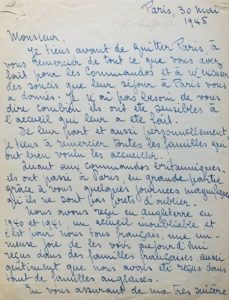 Paris, 30 mai
1945
Monsieur,
Je tiens avant de quitter Paris, à
vous remercier de tout ce que vous avez
fait pour les Commandos et à m'excuser
des soucis que leur séjour à Paris vous
a donnés. Je n'ai pas besoin de vous
dire combien ils ont été sensibles à
l'accueil qui leur a été fait.
De leur part et aussi personnellement
je tiens à remercier toutes les familles qui
ont bien voulu les accueillir.
Quant aux commandos britanniques,
ils ont passé à Paris, en grande partie
grâce à vous quelques journées magnifiques
qu'ils ne sont pas prêts d'oublier.
Nous avons reçu en Angleterre en
1940 et 1941 un accueil inoubliable et
c'est pour nous tous français, une im-
mense joie de les voir aujourd'hui
reçus dans des familles françaises aussi
gentiment que nous avons été reçus dans
tant de familles anglaises.
En vous assurant de ma très sincère